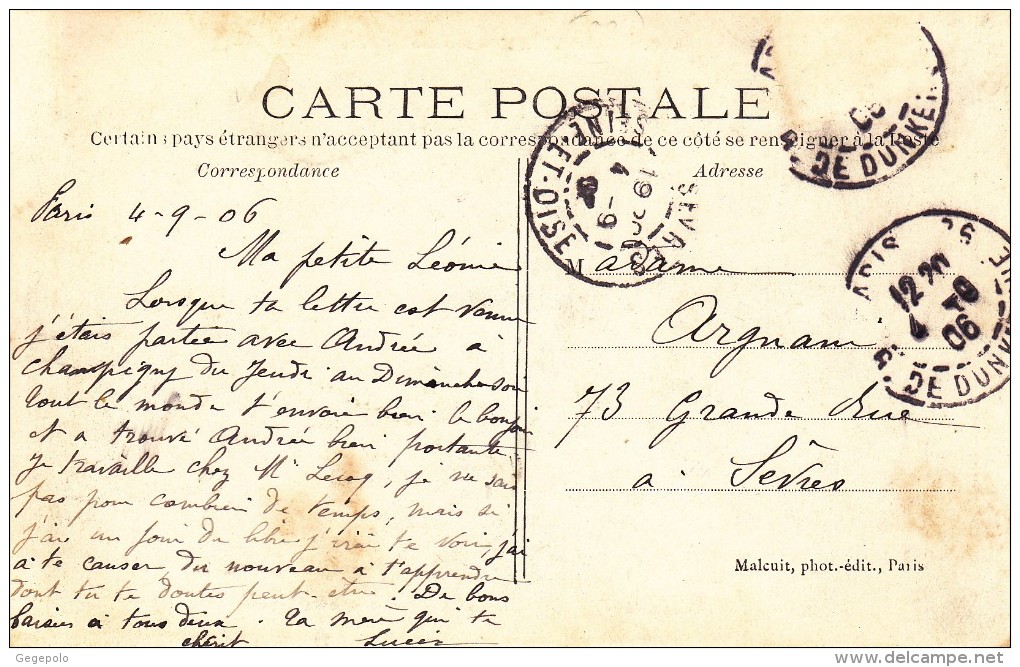 CARTE POSTALE
Certains pays étrangers n'acceptant pas la correspondance de ce côté se renseigner à la Poste
Correspondance
Paris 4-9-06
Ma petite Léonie
Lorsque ta lettre est venue
j'étais partée avec Andrée à
Champigny du Jeudi au Dimanche soir
tout le monde t'envoie bien le bonjour
et a trouvé Andrée bien portante
Je travaille chez Mr Lecoq, je ne sais
pas pour combien de temps, mais si
j'ai un jour de libre j'irai te voir, j'ai
à te causer du nouveau à t'apprendre
dont tu te doutes peut-être. De bons
baisers à tous deux. Ta mère qui te
chérit
Adresse
Madame
Argnani
73 Grande Rue
à Sèvres
Malcuit, phot.-édit., Paris
SEINE-ET-OISE
SEVRES
4 -9
DE DUNKER
PARIS 26
12 20
4 -9
06
R. DE DUNK
Gegepolo
delcampe.net